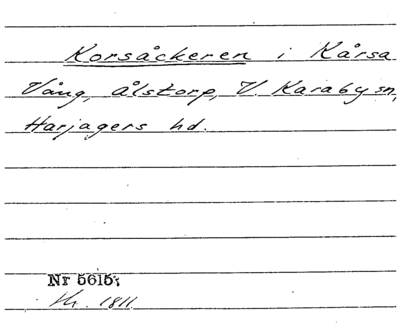 Korsåckeren i Kårsa
Vång, Ålstorp, V. Karaby sn,
Harjagers hd.
Nr 5615;
1811